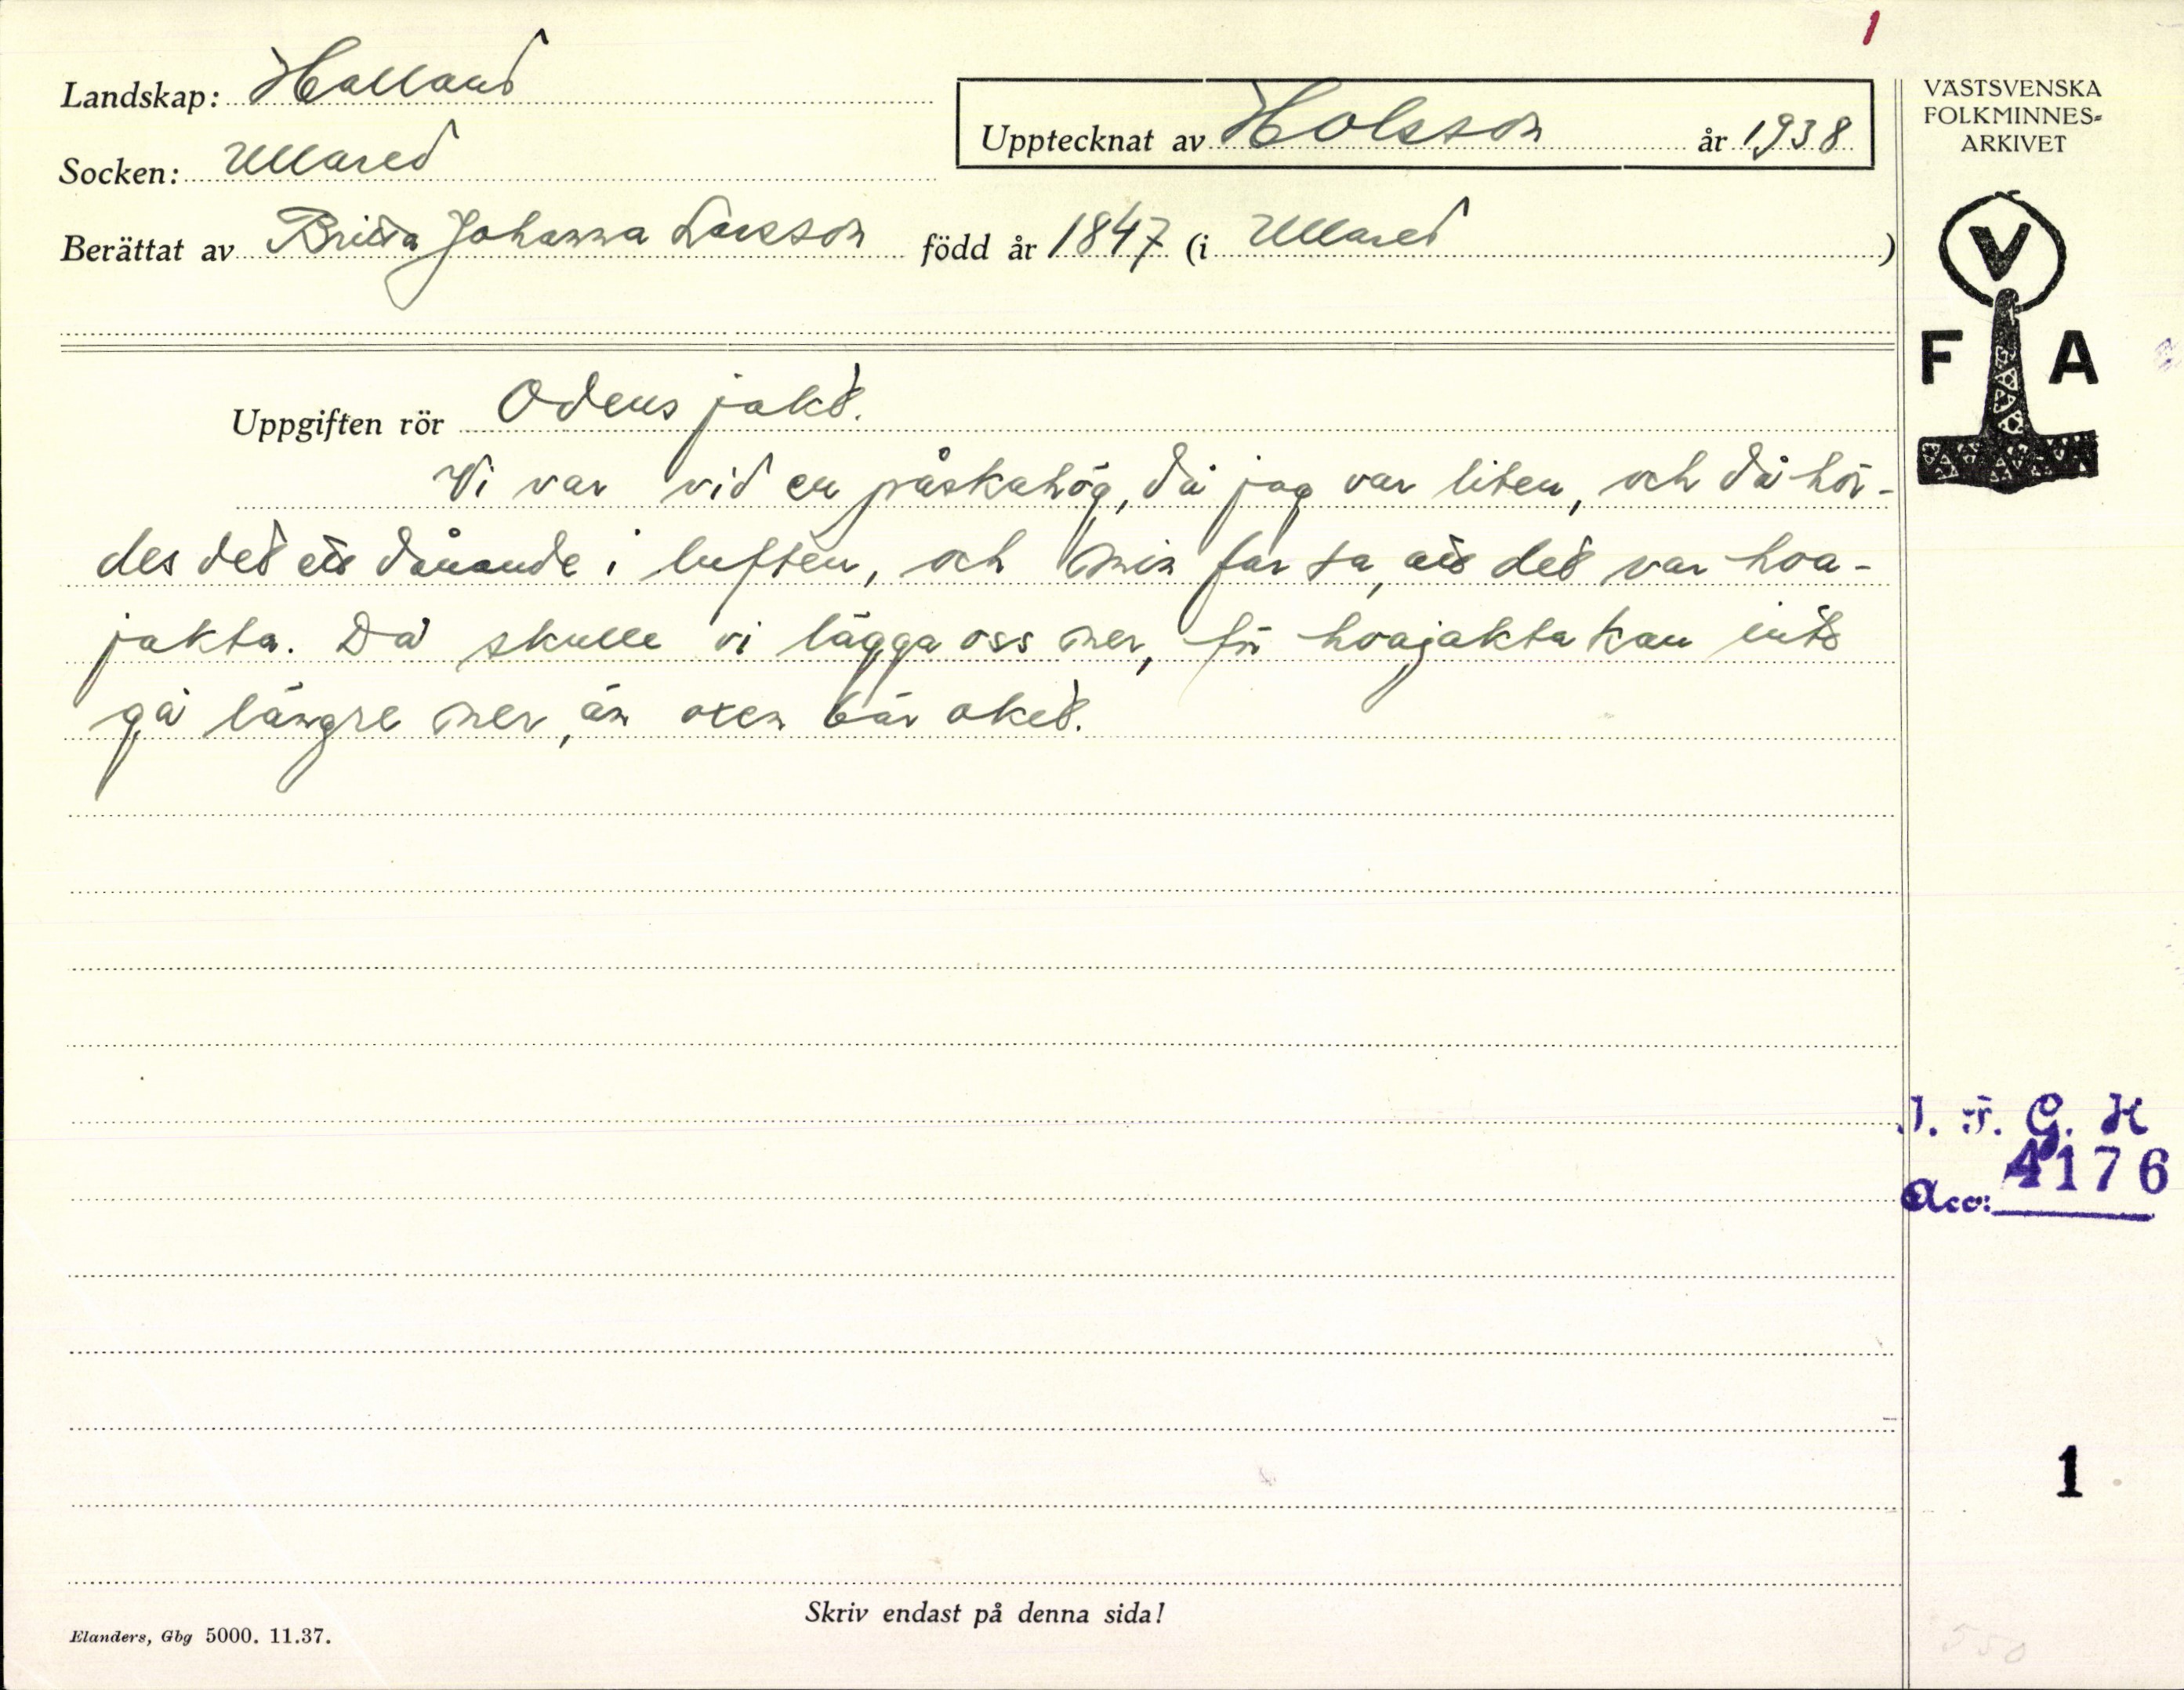 1
Landskap: Halland
Upptecknat av Holsson år 1938
Socken: Ullared
Berättat av Britta Johanna Larsson född år 1847 (i Ullared)
VÄSTSVENSKA
FOLKMINNES-
ARKIVET
V
F A
Uppgiften rör Odens jakt.
Vi var vid en påskahög, då jag var liten, och då hör-
des det ett dånande i luften, och min far sa, att det var hoa-
jakta. Då skulle vi lägga oss ner, för hoajakta kan inte
gå längre ner, än oxen bär oket.
I. F. G. H
4176
Acc:
1
Skriv endast på denna sida!
Elanders, Gbg 5000. 11.37.
550